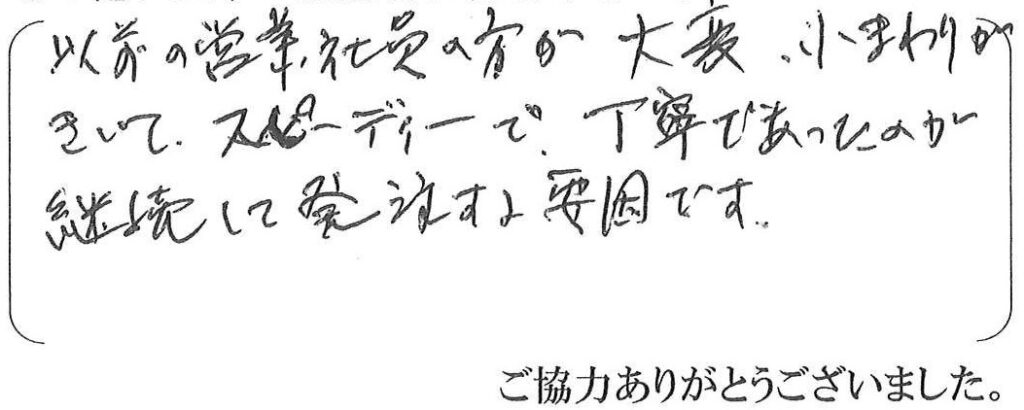 以前の営業社員の方が 大変、小まわりが
きいて、スピーディーで、丁寧であったのが
継続して発注する要因です。
ご協力ありがとうございました。